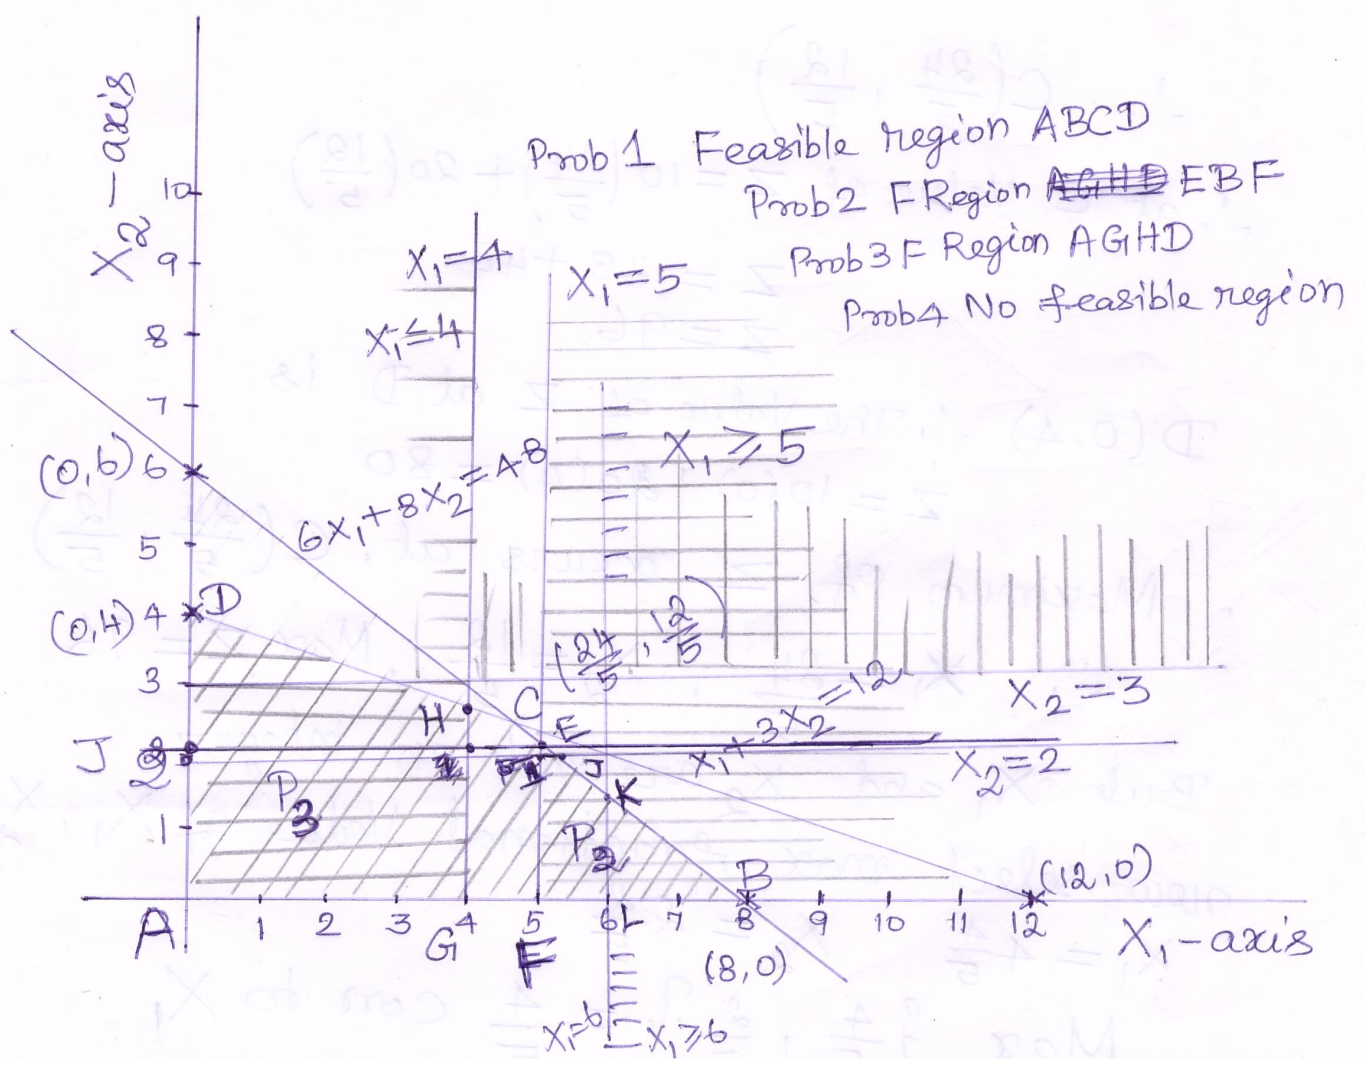 Prob 1 Feasible region ABCD
Prob2 F Region EBF
Prob3 F Region AGHD
Prob4 No feasible region
X2 – axis
10
9
8
7
(0,6) 6
5
(0,4) 4 D
3
J 2
1
X1=4
X1≤4
X1=5
X1≥5
6X1+8X2=48
(24/5, 12/5)
X1+3X2=12
X2=3
X2=2
H
C
E
J
K
P3
P2
B
(12,0)
A
1 2 3 4 5 6 L 7 8 9 10 11 12
G
F
(8,0)
X1-axis
X1=6
X1≥6